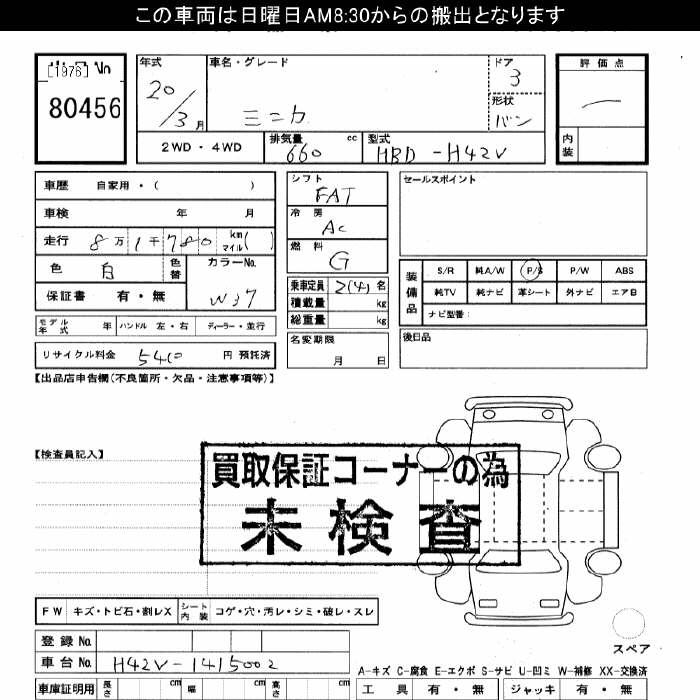 この車両は日曜日AM8:30からの搬出となります
[1976]
80456
年式
20/3月
車名・グレード
ミニカ
ドア
3
形状
バン
評価点
内装
2WD・4WD
排気量 660 cc
型式 HBD-H42V
車歴 自家用・( )
車検 年 月
走行 8万1千780 km マイル( )
色 白 色替
カラーNo. W37
保証書 有・無
モデル年式 年 ハンドル 左・右 ディーラー・並行
リサイクル料金 5410 円 預託済
シフト
FAT
冷房
AC
燃料
G
乗車定員 2(4)名
積載量 kg
総重量 kg
名変期限
月 日
セールスポイント
装備品
S/R 純A/W P/S P/W ABS
純TV 純ナビ 革シート 外ナビ エアB
ナビ型番:
後日品
【出品店申告欄(不良箇所・欠品・注意事項等)】
【検査員記入】
買取保証コーナーの為
未検査
FW キズ・トビ石・割レX シート内装 コゲ・穴・汚レ・シミ・破レ・スレ
スペア
登録No.
車台No. H42V-1415002
A-キズ C-腐食 E-エクボ S-サビ U-凹ミ W-補修 XX-交換済
車庫証明用 長さ cm 幅 cm 高さ cm
工具 有・無 ジャッキ 有・無